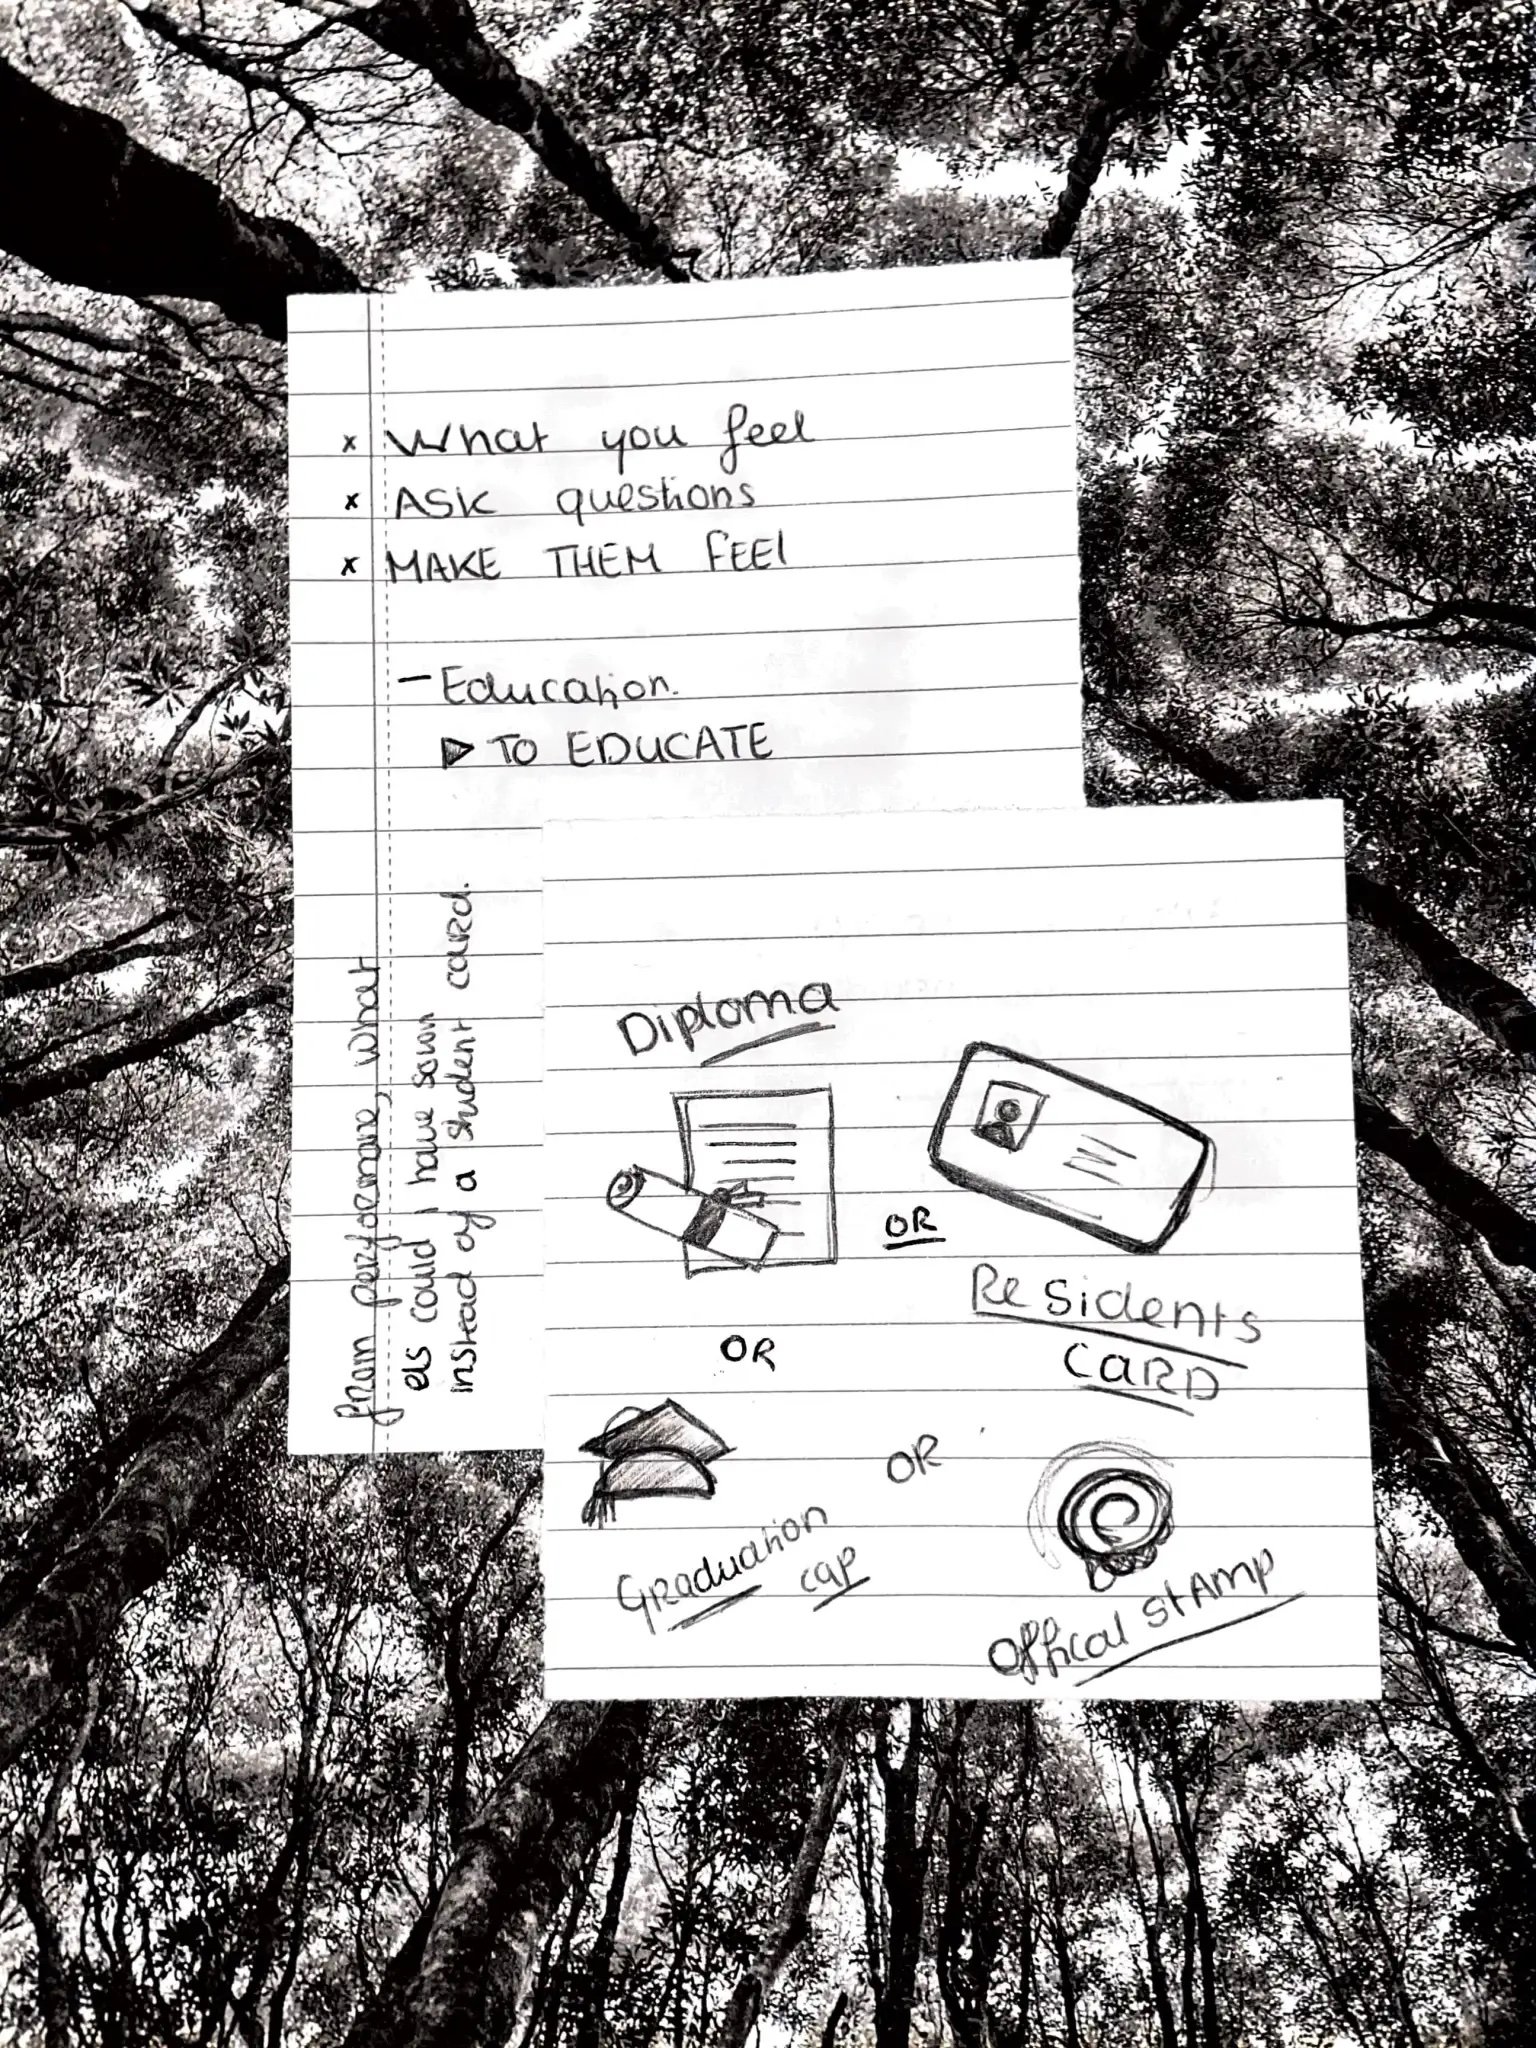 x What you feel
x ASK questions
x MAKE THEM FEEl
- Education.
▷ TO EDUCATE
from performane, what
els could i have sown
instead of a student card.
Diploma
OR
Residents
CARD
OR
OR
Graduation
cap
Offical StAmp